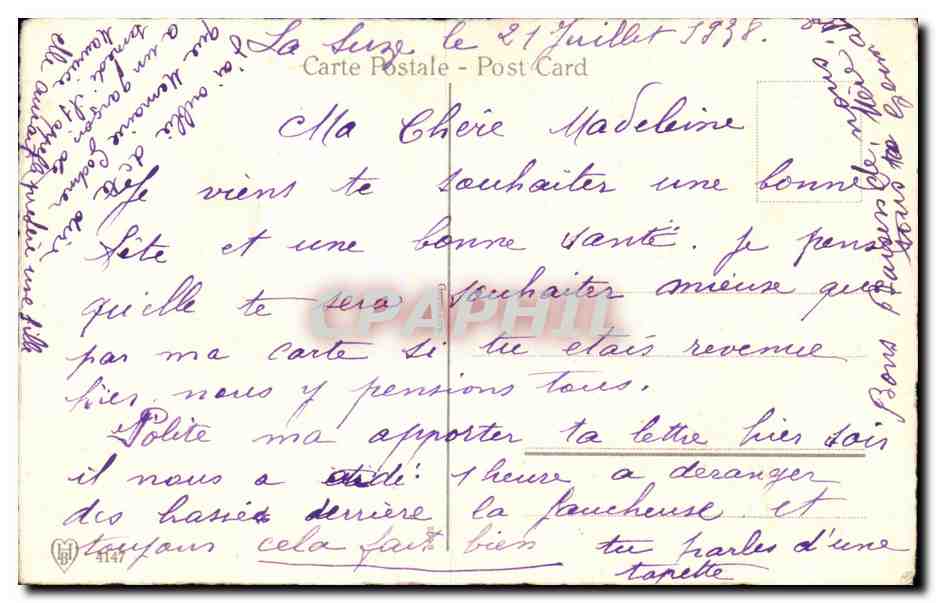 La Suze le 21 Juillet 1938.
Carte Postale - Post Card
Ma Chère Madeleine
Je viens te souhaiter une bonne
fête et une bonne santé. Je pense
qu'elle te sera souhaiter mieuse que
par ma carte si tu etais revenue
hier, nous y pensions tous.
Polite ma apporter ta lettre hier soir
il nous a aidé 1 heure a deranger
des hassiés derrière la faucheuse et
toujours cela fait bien tu parles d'une
tapette
4147
J'ai oublié de te
que Memaire dire
a un garçon de
samedi. Il s'appelle
Maurice
elle aurait préféré une fille
Bons Baisers de Mère
CPAPHIL